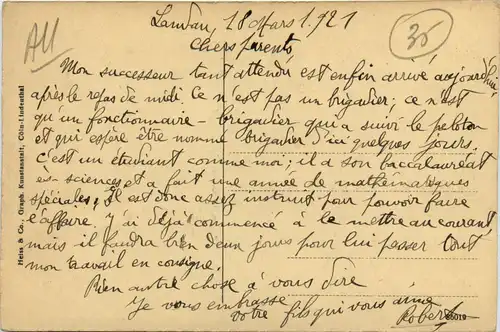 All
35
Landau, 18 Mars 1921
Chers parents
Mon successeur tant attendu est enfin arrivé aujourd'hui
après le repas de midi Ce n'est pas un brigadier; ce n'est
qu'un fonctionnaire-brigadier qui a suivi le peloton
et qui espère être nommé brigadier d'ici quelques jours.
C'est un étudiant comme moi; il a son baccalauréat
en sciences et a fait une année de mathématiques
spéciales; Il est donc assez instruit pour pouvoir faire
l'affaire. J'ai déjà commencé à le mettre au courant
mais il faudra bien deux jours pour lui passer tout
mon travail en consigne.
Rien autre chose à vous dire
Je vous embrasse
votre fils qui vous aime
Robert
Heiss & Co., Graph. Kunstanstalt, Cöln-Lindenthal